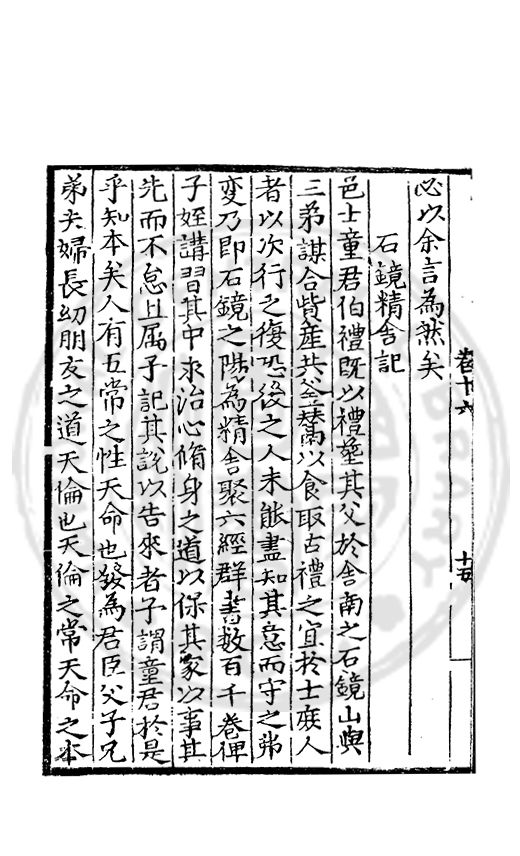 卷十六
十五
必以余言為然矣
石鏡精舍記
邑士童君伯禮既以禮塟其父於舍南之石鏡山與
三弟謀合貲產共釜鬵以食取古禮之宜扵士庶人
者以次行之復恐後之人未能盡知其意而守之弗
變乃即石鏡之陽為精舍聚六經群書数百千卷俾
子姪講習其中求治心脩身之道以保其家以事其
先而不怠且属予記其說以告來者予謂童君於是
乎知本矣人有五常之性天命也發為君臣父子兄
弟夫婦長幼朋友之道天倫也天倫之常天命之本